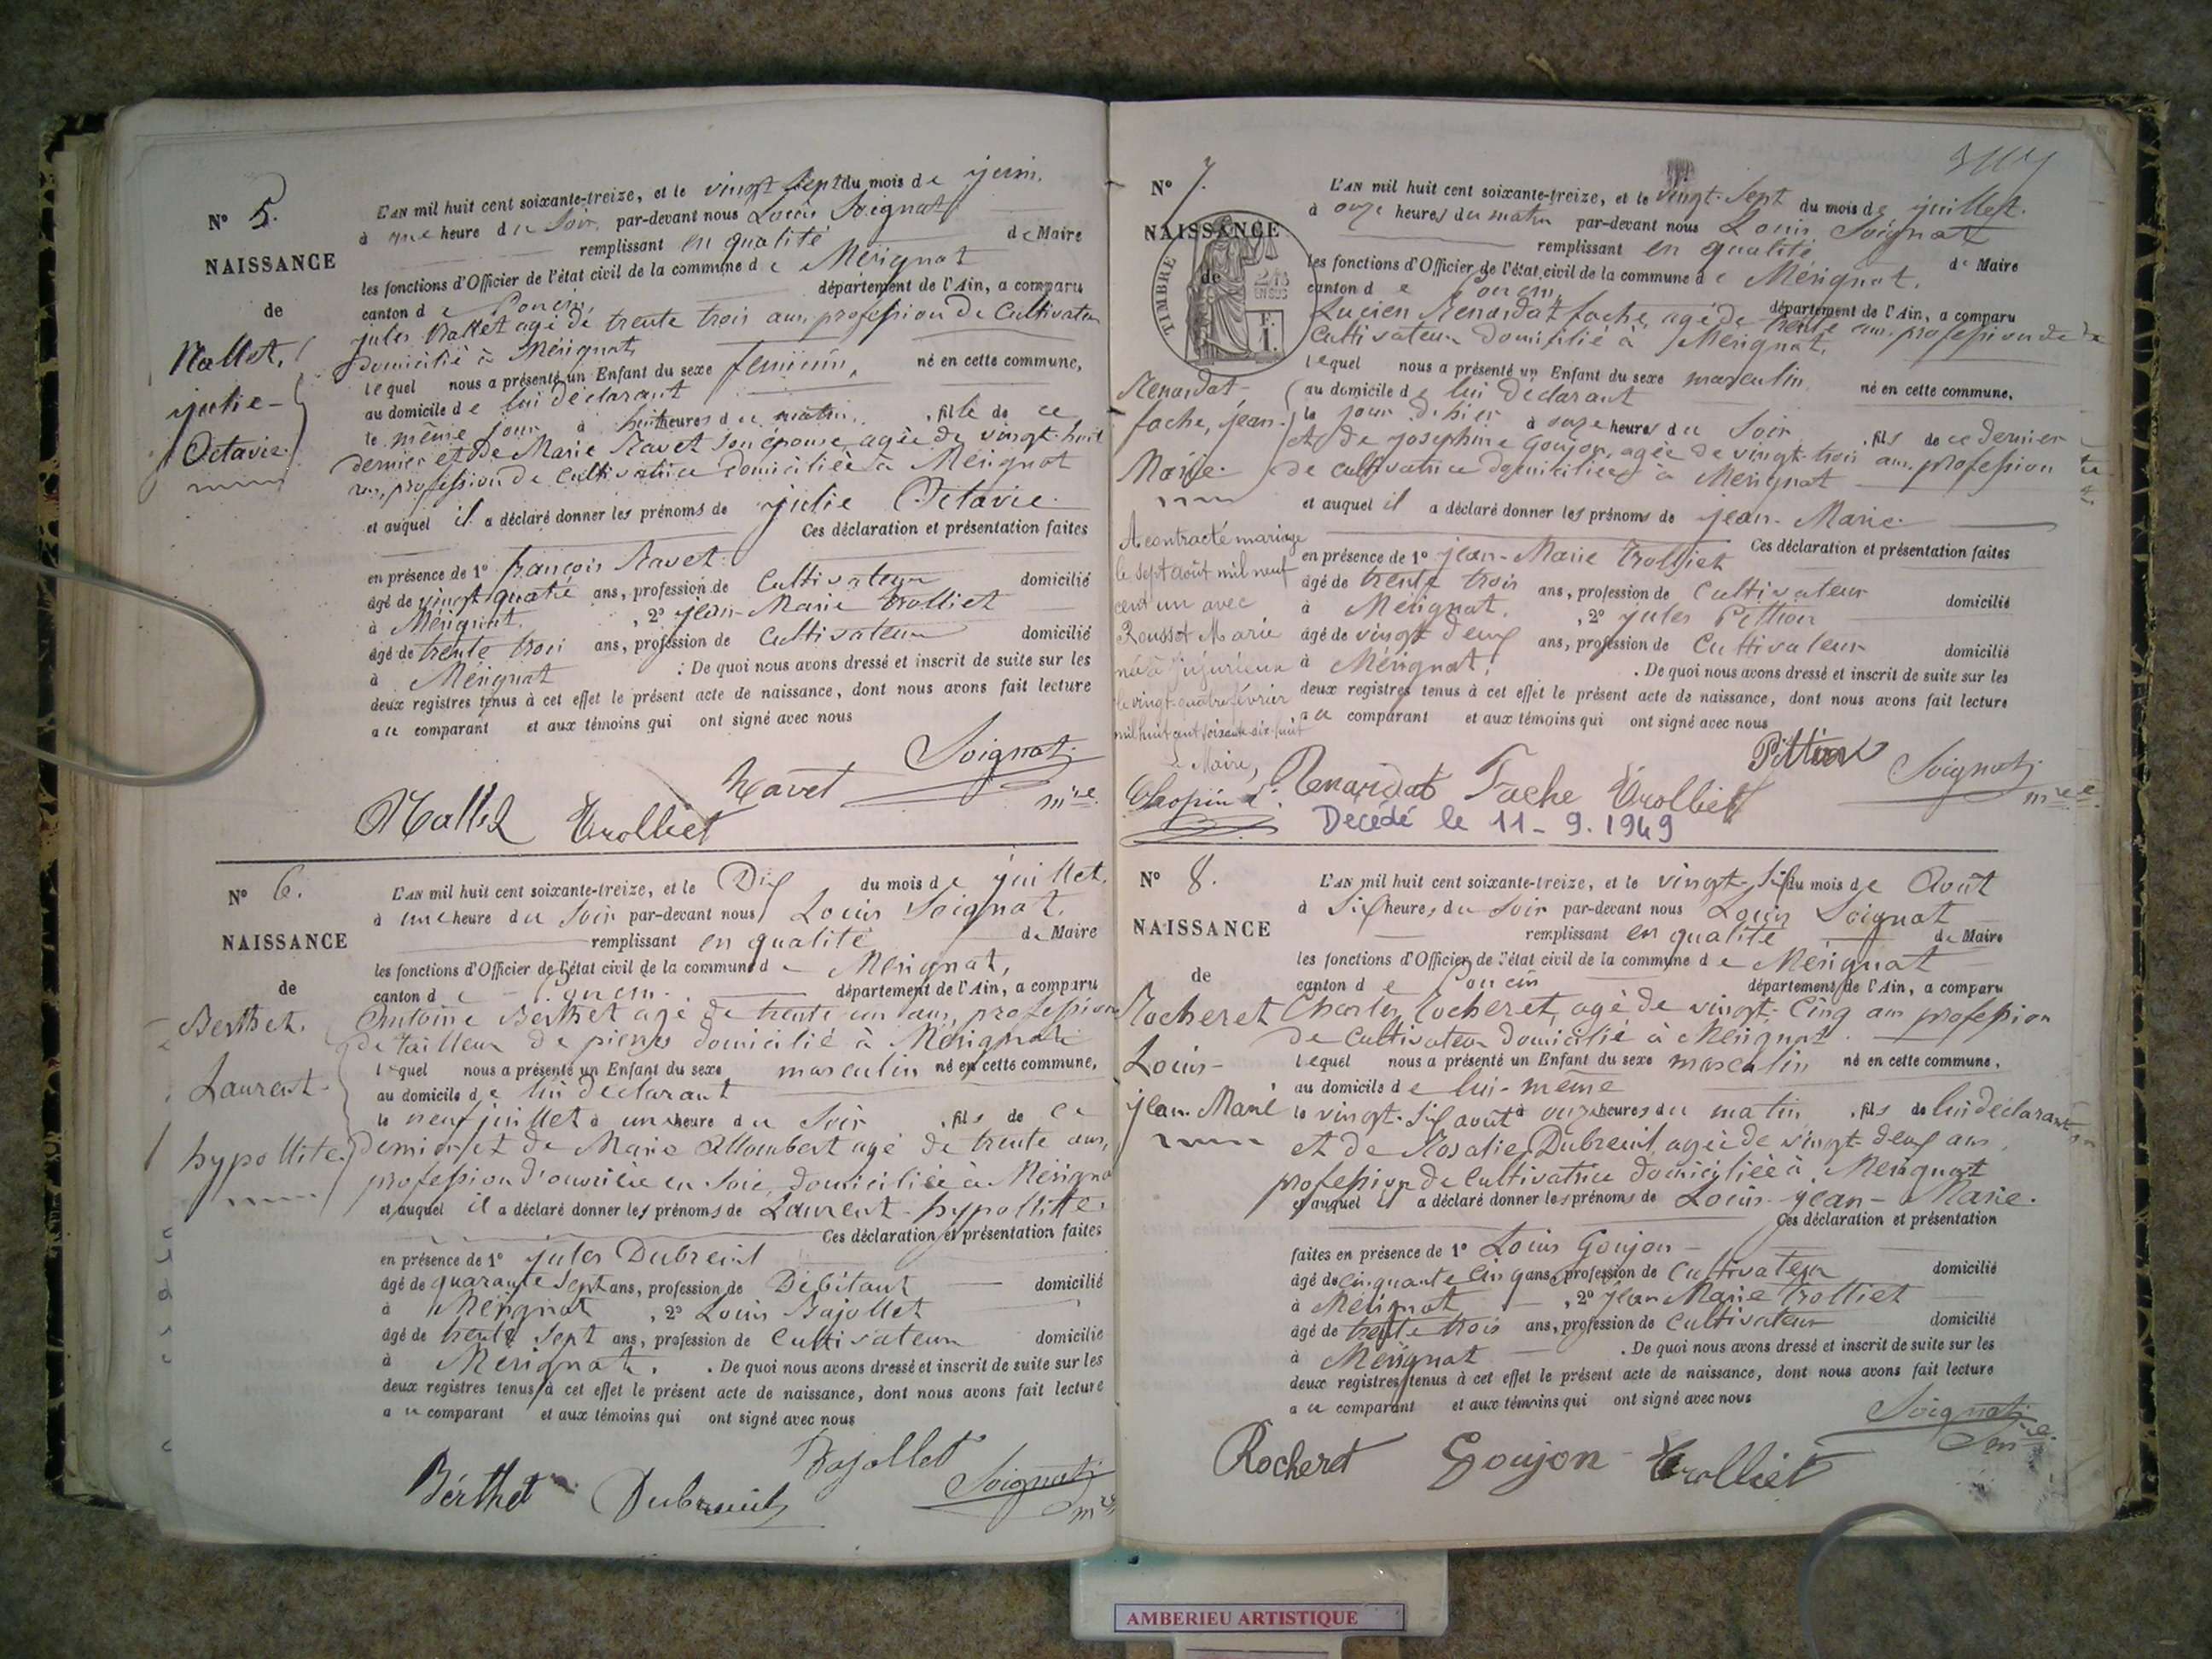 N° 5.
NAISSANCE
de
Nallet,
julie-
Octavie.
L'AN mil huit cent soixante-treize, et le vingt Sept du mois de juin.
à une heure du Soir, par-devant nous Louis Soignat
remplissant en qualité de Maire
les fonctions d'Officier de l'état civil de la commune de Mérignat
canton de Poncin, département de l'Ain, a comparu
jules Nallet agé de trente trois ans, profession de Cultivateur
domicilié à Mérignat
lequel nous a présenté un Enfant du sexe feminin, né en cette commune,
au domicile de lui déclarant
le même jour à huit heures du matin, fille de ce
dernier et de Marie Ravet son épouse, agée de vingt-huit
ans, profession de Cultivatrice domiciliée à Mérignat
et auquel il a déclaré donner les prénoms de julie Octavie.
Ces déclaration et présentation faites
en présence de 1° françois Ravet
âgé de vingt quatre ans, profession de Cultivateur domicilié
à Mérignat, 2° jean-Marie Trolliet
âgé de trente trois ans, profession de Cultivateur domicilié
à Mérignat : De quoi nous avons dressé et inscrit de suite sur les
deux registres tenus à cet effet le présent acte de naissance, dont nous avons fait lecture
a ce comparant et aux témoins qui ont signé avec nous
Soignat
mre
Nallet Trolliet Ravet
N° 6.
NAISSANCE
de
Berthet.
Laurent-
hypollite.
L'AN mil huit cent soixante-treize, et le Dix du mois de juillet,
à une heure du Soir par-devant nous Louis Soignat,
remplissant en qualité de Maire
les fonctions d'Officier de l'état civil de la commune de Mérignat,
canton de Poncin. département de l'Ain, a comparu
Antoine Berthet agé de trente un ans, profession
de tailleur de pierres domicilié à Mérignat
lequel nous a présenté un Enfant du sexe masculin né en cette commune,
au domicile de lui déclarant
le neuf juillet à une heure du Soir, fils de ce
dernier et de Marie Allombert agé de trente ans,
profession d'ouvrière en Soie, domiciliée à Mérignat
et auquel il a déclaré donner les prénoms de Laurent-hypollitte.
Ces déclaration et présentation faites
en présence de 1° jules Dubreuil
âgé de quarante Sept ans, profession de Débitant domicilié
à Mérignat, 2° Louis Bajollet
âgé de trente Sept ans, profession de Cultivateur domicilié
à Mérignat. . De quoi nous avons dressé et inscrit de suite sur les
deux registres tenus à cet effet le présent acte de naissance, dont nous avons fait lecture
a ce comparant et aux témoins qui ont signé avec nous
Berthet Dubreuil Bajollet Soignat
mre
N° 7.
NAISSANCE
de
TIMBRE
2/10
EN SUS
Renardat-
fache, jean-
Marie.
A contracté mariage
le sept août mil neuf
cent un avec
Roussot Marie
née à Jujurieux
le vingt-quatre février
mil huit cent soixante-dix-huit
Le Maire,
L'AN mil huit cent soixante-treize, et le vingt-Sept du mois de juillet.
à onze heures du matin par-devant nous Louis Soignat
remplissant en qualité de Maire
les fonctions d'Officier de l'état civil de la commune de Mérignat,
canton de Poncin, département de l'Ain, a comparu
Lucien Renardat fache, agé de trente ans, profession de
Cultivateur domicilié à Mérignat.
lequel nous a présenté un Enfant du sexe masculin, né en cette commune,
au domicile de lui déclarant
le jour d'hier à onze heures du Soir, fils de ce dernier
et de josephine Goujon, agée de vingt-trois ans, profession
de cultivatrice domiciliée à Mérignat
et auquel il a déclaré donner les prénoms de jean-Marie.
Ces déclaration et présentation faites
en présence de 1° jean-Marie Trolliet
âgé de trente trois ans, profession de Cultivateur domicilié
à Mérignat. , 2° jules Pittion
âgé de vingt deux ans, profession de Cultivateur domicilié
à Mérignat. . De quoi nous avons dressé et inscrit de suite sur les
deux registres tenus à cet effet le présent acte de naissance, dont nous avons fait lecture
a ce comparant et aux témoins qui ont signé avec nous
Pittion Soignat
mre
Renardat Fache Trolliet
Decédé le 11-9.1949
N° 8.
NAISSANCE
de
Rocheret
Louis-
jean-Marie
L'AN mil huit cent soixante-treize, et le vingt-Six du mois de Août
à Six heures du Soir par-devant nous Louis Soignat
remplissant en qualité de Maire
les fonctions d'Officier de l'état civil de la commune de Mérignat
canton de Poncin département de l'Ain, a comparu
Charles Rocheret, agé de vingt-Cinq ans profession
de Cultivateur domicilié à Mérignat.
lequel nous a présenté un Enfant du sexe masculin né en cette commune,
au domicile de lui-même
le vingt-Six août à onze heures du matin, fils de lui déclarant
et de Rosalie Dubreuil, agée de vingt-deux ans,
profession de Cultivatrice domiciliée à Mérignat
et auquel il a déclaré donner les prénoms de Louis-jean-Marie.
Ces déclaration et présentation
faites en présence de 1° Louis Goujon
âgé de cinquante cinq ans, profession de Cultivateur domicilié
à Mérignat, 2° jean Marie Trolliet
âgé de trente trois ans, profession de Cultivateur domicilié
à Mérignat . De quoi nous avons dressé et inscrit de suite sur les
deux registres tenus à cet effet le présent acte de naissance, dont nous avons fait lecture
a ce comparant et aux témoins qui ont signé avec nous
Soignat
mre
Rocheret Goujon Trolliet
AMBERIEU ARTISTIQUE